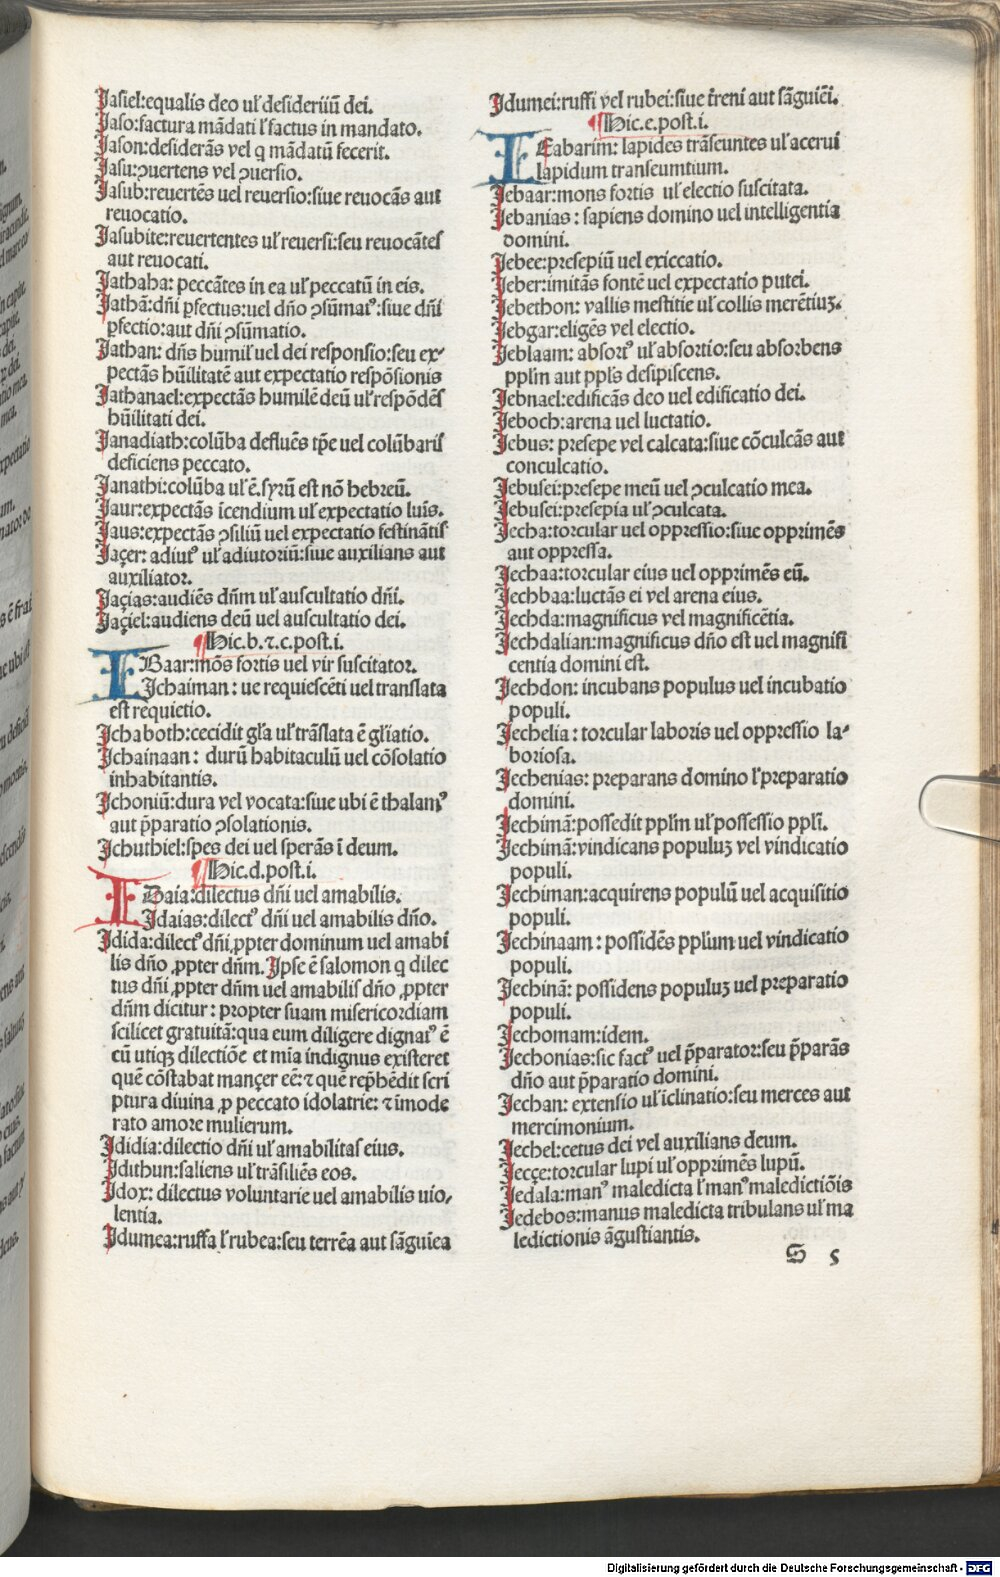 Jasiel:equalis deo uł desideriũ dei.
Jaso:factura mãdati ł factus in mandato.
Jason:desiderãs vel q mãdatũ fecerit.
Jasu:ꝯuertens vel ꝯuersio.
Jasub:reuertẽs uel reuersio:siue reuocãs aut
reuocatio.
Jasubite:reuertentes uł reuersi:seu reuocãtes
aut reuocati.
Jathaba: peccãtes in ea uł peccatũ in eis.
Jathã:dñi ꝑfectus:uel dño ꝯsũmatꝰ:siue dñi
ꝑfectio:aut dñi ꝯsũmatio.
Jathan: dñs humił uel dei responsio:seu ex-
pectãs hũilitatẽ aut expectatio respõsionis
Jathanael:expectãs humilẽ deũ uł respõdẽs
hũilitati dei.
Janadiath:colũba defluẽs tꝑe uel colũbaris
deficiens peccato.
Janathi:colũba uł ẽ.syrũ est nõ hebreũ.
Jaur:expectãs ĩcendium uł expectatio luis.
Jaus:expectãs ꝯsiliũ uel expectatio festinãtis
Jaçer: adiutꝰ uł adiutoriũ:siue auxilians aut
auxiliator.
Jaçias:audiẽs dñm uł auscultatio dñi.
Jaçiel:audiens deũ vel auscultatio dei.
¶Hic.b.⁊.c.post.i.
IBaar:mõs fortis uel vir suscitator.
Jchaiman: ue requiescẽti uel translata
est requietio.
Jchaboth:cecidit gła uł trãslata ẽ głiatio.
Jchainaan: durũ habitaculũ uel cõsolatio
inhabitantis.
Jchoniũ:dura vel vocata:siue ubi ẽ thalamꝰ
aut p̃paratio ꝯsolationis.
Jchuthiel:spes dei uel sperãs ĩ deum.
¶Hic.d.post.i.
IDaia:dilectus dñi uel amabilis.
Jdaias:dilectꝰ dñi uel amabilis dño.
Jdida:dilectꝰ dñi ꝓpter dominum uel amabi
lis dño ꝓpter dñm. Jpse ẽ salomon q dilec
tus dñi ꝓpter dñm uel amabilis dño ꝓpter
dñm dicitur: propter suam misericordiam
scilicet gratuitã:qua eum diligere dignatꝰ ẽ
cũ utiqꝫ dilectiõe et mĩa indignus existeret
quẽ cõstabat mançer eẽ:⁊ quẽ rep̃hẽdit scri
ptura diuina ꝓ peccato idolatrie: ⁊ ĩmode
rato amore mulierum.
Jdidia:dilectio dñi uł amabilitas eius.
Jdithun:saliens uł trãsiliẽs eos.
Jdox: dilectus voluntarie uel amabilis uio-
lentia.
Jdumea:ruffa ł rubea:seu terrẽa aut sãguĩea
Jdumei:ruffi vel rubei:siue t̃reni aut sãguiẽi.
¶Hic.e.post.i.
IEabarim: lapides trãseuntes uł acerui
lapidum transeumtium.
Jebaar:mons fortis uł electio suscitata.
Jebanias: sapiens domino uel intelligentia
domini.
Jebee:presepiũ uel exiccatio.
Jeber:imitãs fontẽ uel expectatio putei.
Jebethon: vallis mestitie uł collis merẽtiuꝫ.
Jebgar:eligẽs vel electio.
Jeblaam: absortꝰ uł absortio:seu absorbens
ppłm aut ppłs desipiscens.
Jebnael:edificãs deo uel edificatio dei.
Jeboch:arena uel luctatio.
Jebus: presepe vel calcata:siue cõculcãs aut
conculcatio.
Jebusei:presepe meũ uel ꝯculcatio mea.
Jebusei:presepia uł ꝯculcata.
Jecha:torcular uel oppressio:siue opprimẽs
aut oppressa.
Jechaa:torcular eius uel opprimẽs eũ.
Jechbaa:luctãs ei vel arena eius.
Jechda:magnificus vel magnificẽtia.
Jechdalian:magnificus dño est uel magnifi
centia domini est.
Jechdon: incubans populus uel incubatio
populi.
Jechelia: torcular laboris uel oppressio la-
boriosa.
Jechenias: preparans domino ł preparatio
domini.
Jechimã:possedit ppłm uł possessio ppłi.
Jechimã:vindicans populuꝫ vel vindicatio
populi.
Jechiman:acquirens populũ uel acquisitio
populi.
Jechinaam: possidẽs ppłum uel vindicatio
populi.
Jechinã: possidens populuꝫ uel preparatio
populi.
Jechomam:idem.
Jechonias:sic factꝰ uel p̃parator:seu p̃parãs
dño aut p̃paratio domini.
Jechan: extensio uł ĩclinatio:seu merces aut
mercimonium.
Jechel:cetus dei vel auxilians deum.
Jecçe:torcular lupi uł opprimẽs lupũ.
Jedala:manꝰ maledicta ł manꝰ maledictiõis
Jedebos:manus maledicta tribulans uł ma
ledictionis ãgustiantis.
S 5
Digitalisierung gefördert durch die Deutsche Forschungsgemeinschaft - DFG